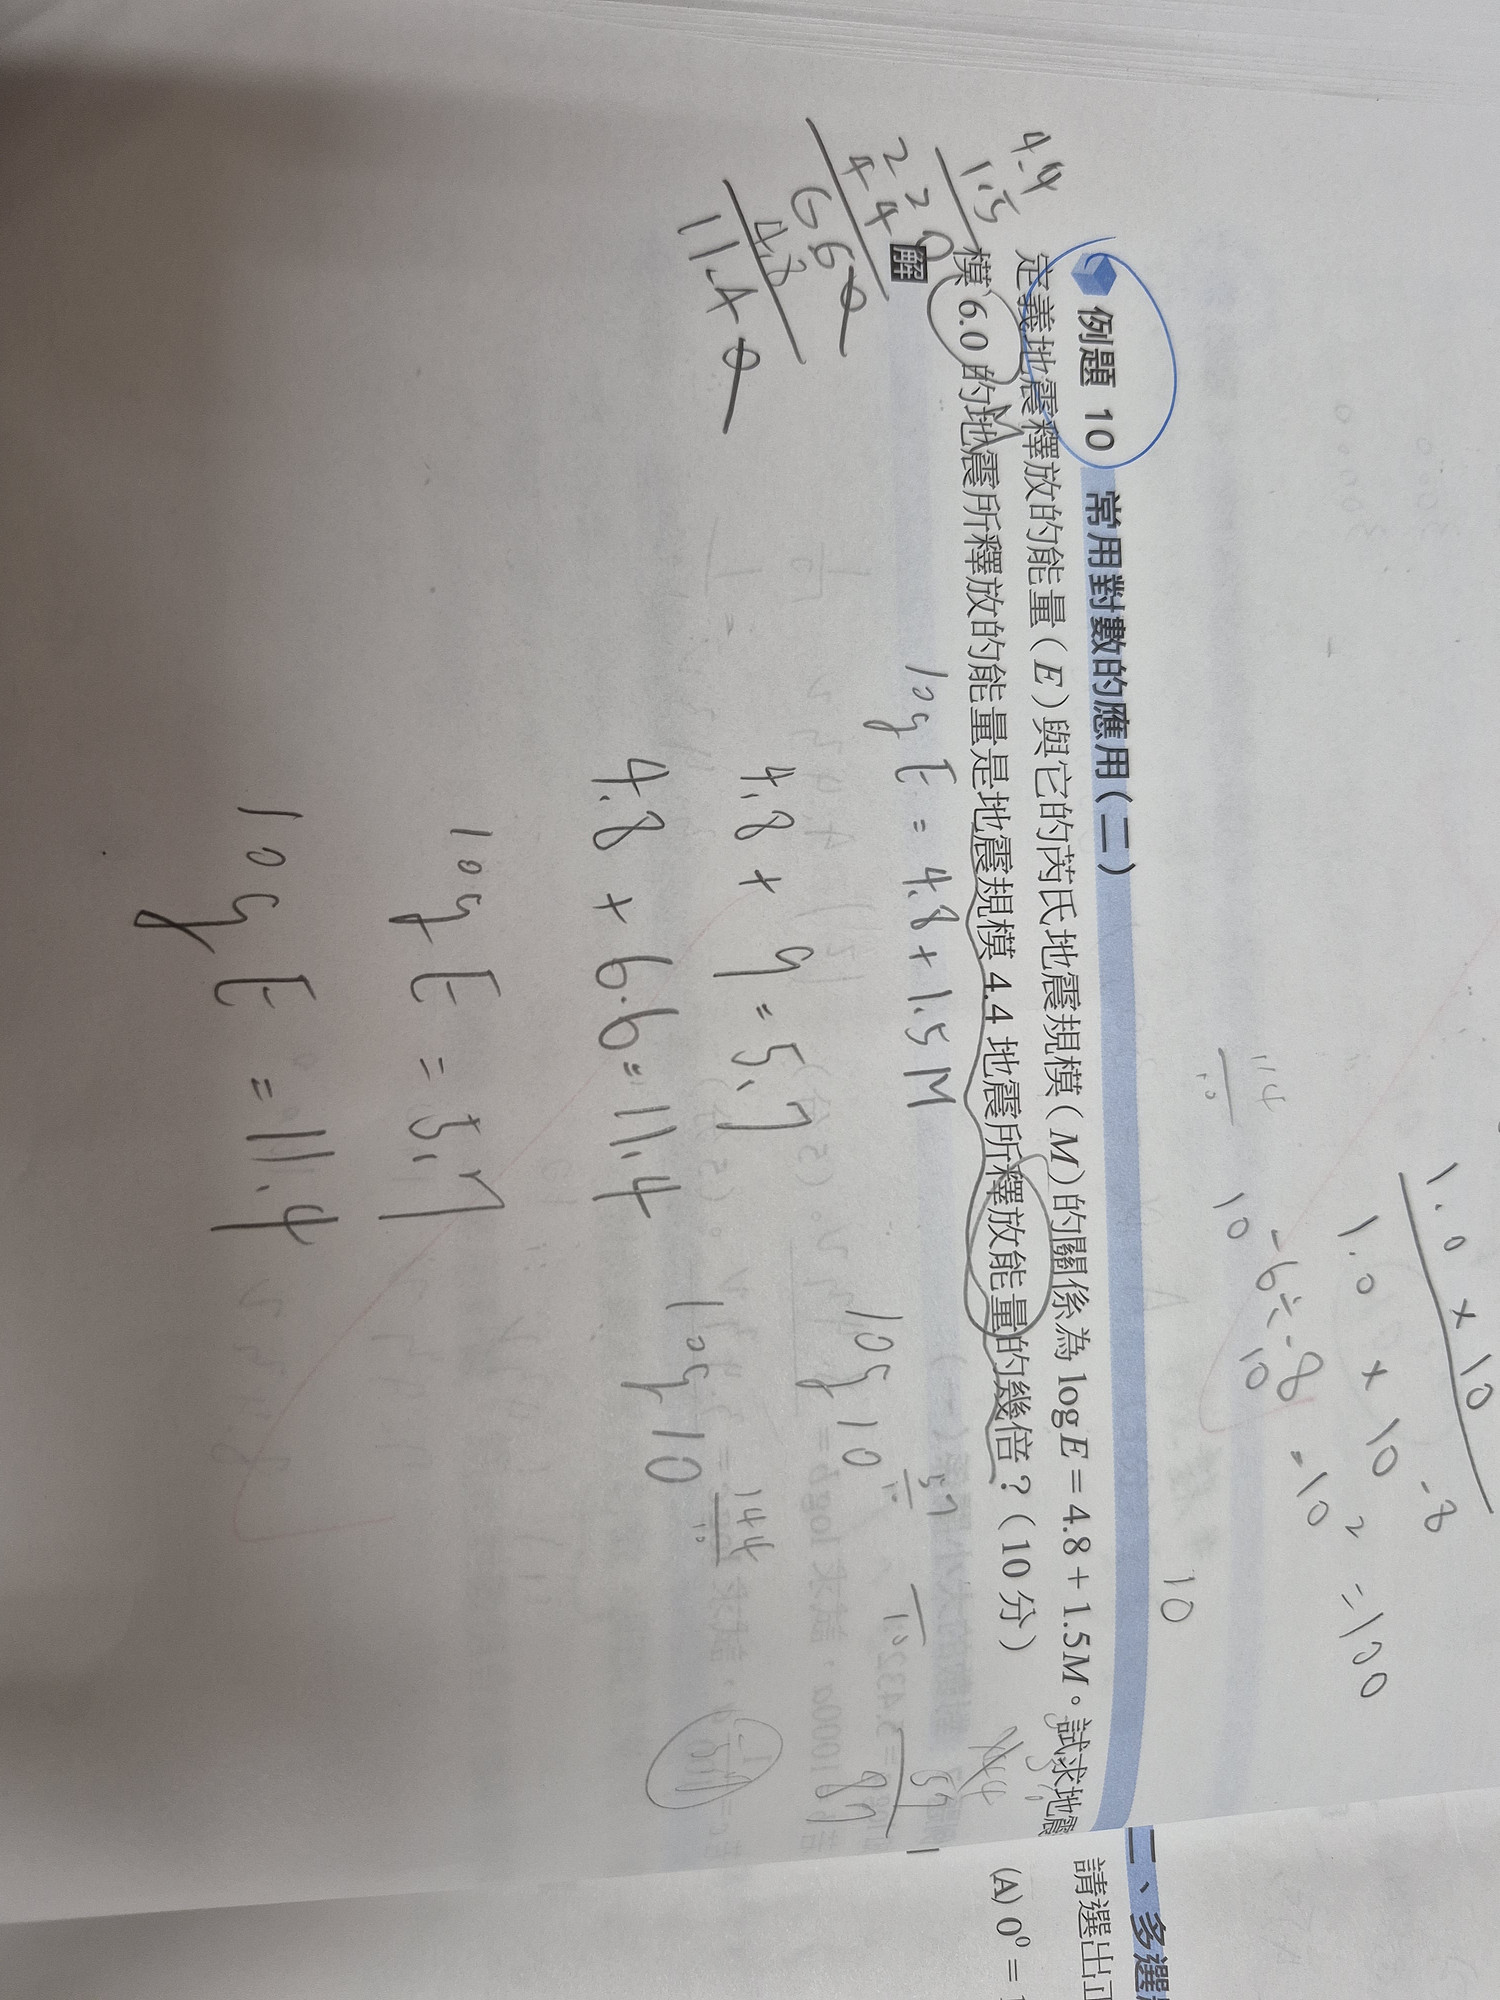 1.0 × 10
1.0 × 10⁻⁸
10⁻⁶÷10⁻⁸ = 10² = 100
10
例題 10 常用對數的應用(二)
定義地震釋放的能量(E)與它的芮氏地震規模(M)的關係為 log E = 4.8 + 1.5M。試求地震
規模 6.0 的地震所釋放的能量是地震規模 4.4 地震所釋放能量的幾倍?(10 分)
M
解
4.4
1.5
220
44
660
4.8
11.40
log E = 4.8 + 1.5M
4.8 + 9 = 5.7
4.8 + 6.6 = 11.4
log E = 5.7
log E = 11.4
log 10 57/10
log 10 144/10
57
87
二、多選
請選出正
(A) 0⁰ = 1